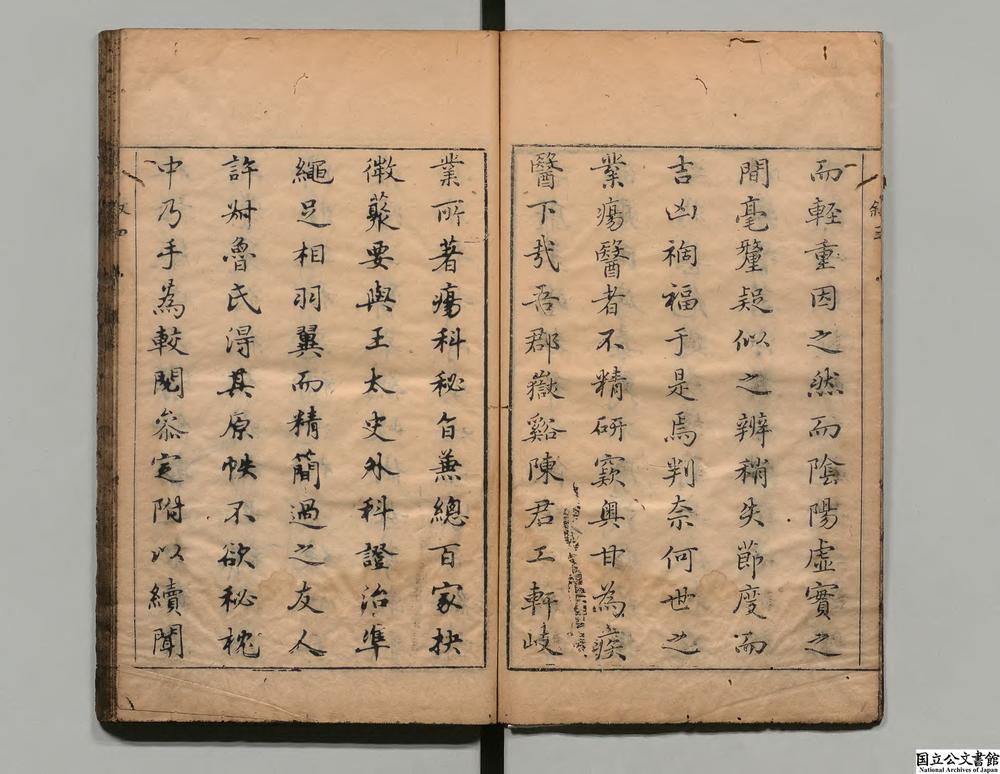 而輕重因之然而陰陽虛實之
間毫釐疑似之辨稍失節度而
吉凶禍福于是焉判奈何世之
業瘍醫者不精研窾奧甘為疾
醫下哉吾郡嶽谿陳君工軒岐
業所著瘍科秘旨兼總百家抉
微蕞要與王太史外科證治準
繩足相羽翼而精簡過之友人
許尌魯氏得其原帙不欲秘枕
中乃手為較閱叅定附以續聞
国立公文書館
National Archives of Japan